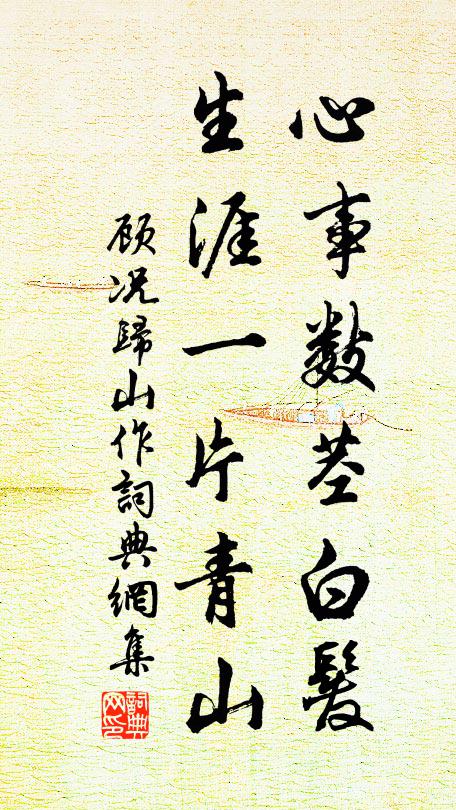 心事數茎白髮
生涯一片青山
顾况歸山作詞典網集
詞典网印